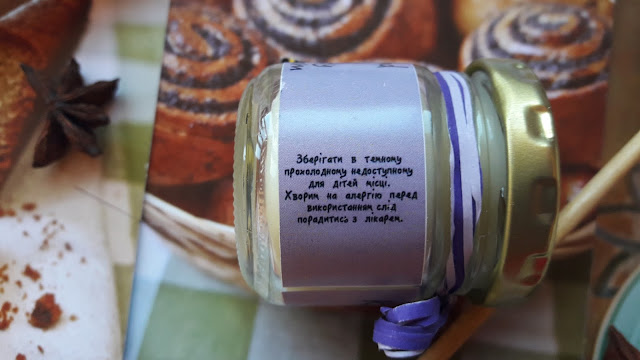 Зберігати в темному
прохолодному недоступному
для дітей місці.
Хворим на алергію перед
використанням слід
порадитись з лікарем.